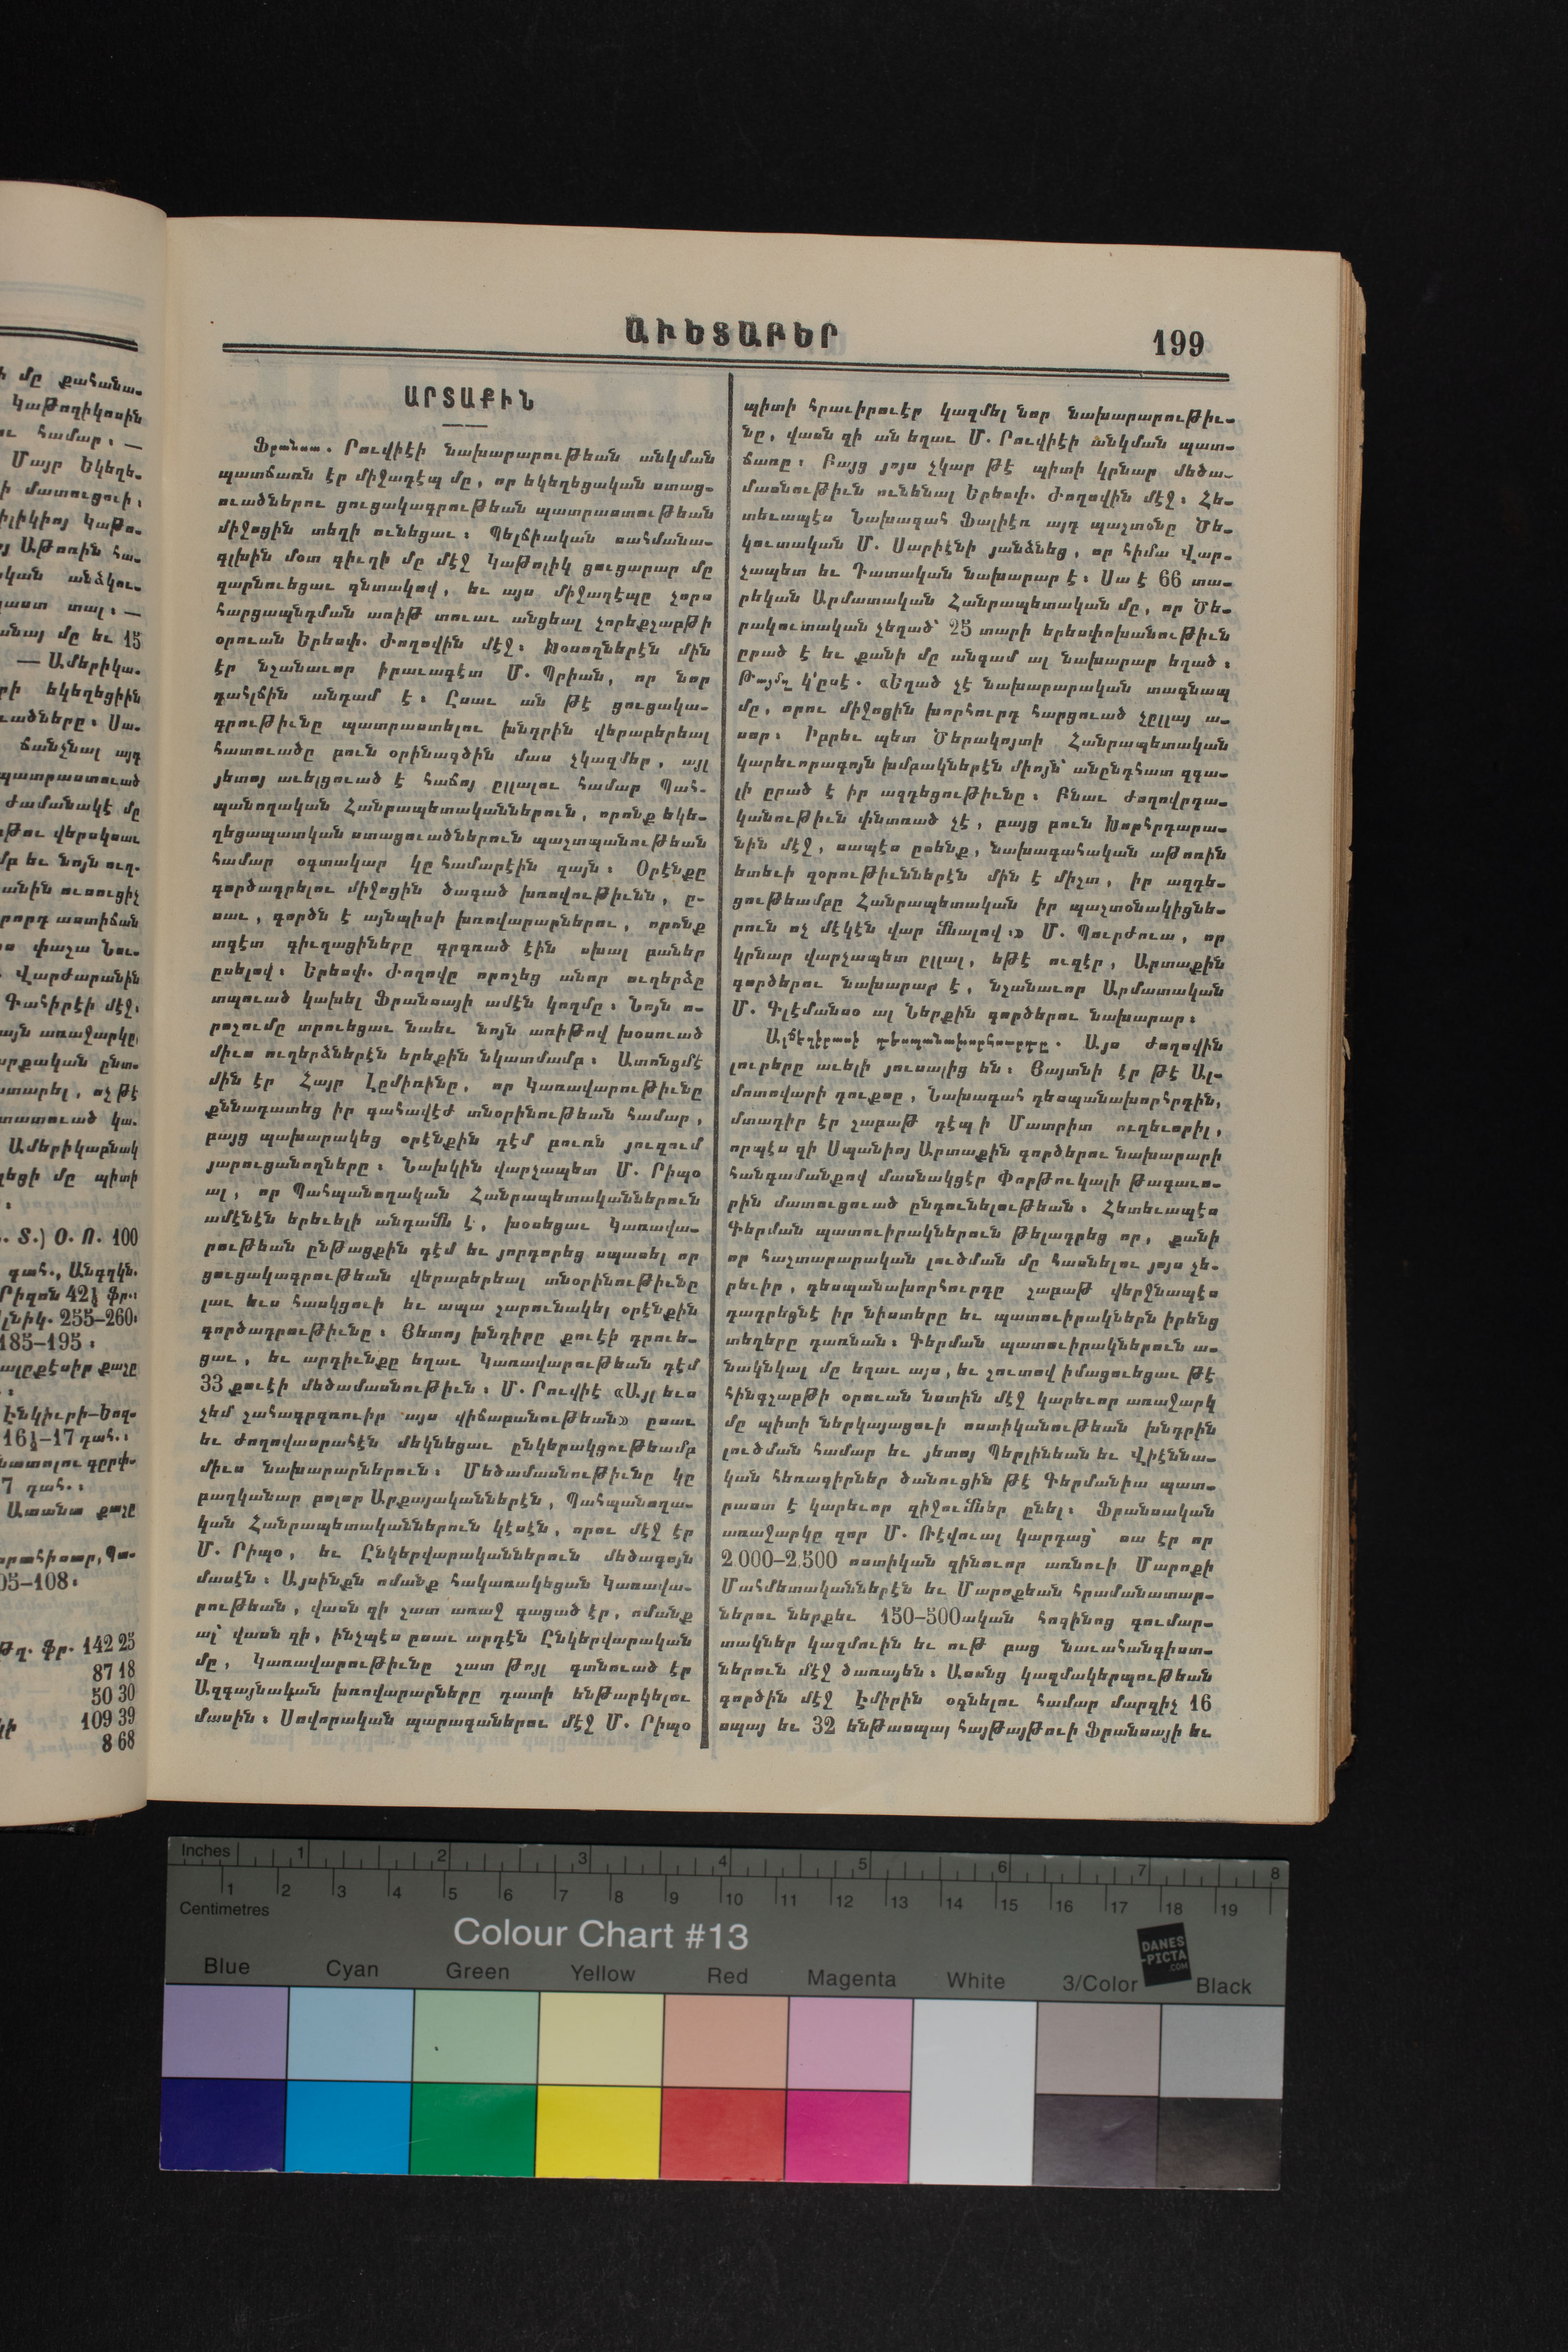 ԱՒԵՏԱԲԵՐ
199
ԱՐՏԱՔԻՆ
Ֆրանսա. Րուվիէի նախարարութեան անկման
պատճառն էր միջադէպ մը, որ եկեղեցական ստաց-
ուածներու ցուցակագրութեան պատրաստութեան
միջոցին տեղի ունեցաւ։ Պելճիական սահմանա-
գլխին մօտ գիւղի մը մէջ Կաթոլիկ ցուցարար մը
զարնուեցաւ գնտակով, եւ այս միջադէպը չորս
հարցապնդման առիթ տուաւ անցեալ չորեքշաբթի
օրուան Երեսփ. Ժողովին մէջ։ Խօսողներէն մին
էր նշանաւոր իրաւագէտ Մ. Պրիան, որ նոր
դահլճին անդամ է։ Ըսաւ ան թէ ցուցակա-
գրութիւնը պատրաստելու խնդրին վերաբերեալ
հատուածը բուն օրինագծին մաս չկազմեր, այլ
յետոյ աւելցուած է հաճոյ ըլլալու համար Պահ-
պանողական Հանրապետականներուն, որոնք եկե-
ղեցապատկան ստացուածներուն պաշտպանութեան
համար օգտակար կը համարէին զայն։ Օրէնքը
գործադրելու միջոցին ծագած խռովութիւնն, ը-
սաւ, գործն է այնպիսի խռովարարներու, որոնք
տգէտ գիւղացիները գրգռած էին սխալ բաներ
ըսելով։ Երեսփ. Ժողովը որոշեց անոր ուղերձը
տպուած կախել Ֆրանսայի ամէն կողմը։ Նոյն ո-
րոշումը տրուեցաւ նաեւ նոյն առիթով խօսուած
միւս ուղերձներէն երեքին նկատմամբ։ Ատոնցմէ
մին էր Հայր Լըմիռինը, որ Կառավարութիւնը
քննադատեց իր գահավէժ տնօրինութեան համար,
բայց պախարակեց օրէնքին դէմ բուռն յուզում
յարուցանողները։ Նախկին վարչապետ Մ. Րիպօ
ալ, որ Պահպանողական Հանրապետականներուն
ամէնէն երեւելի անդամն է, խօսեցաւ Կառավա-
րութեան ընթացքին դէմ եւ յորդորեց սպասել որ
ցուցակագրութեան վերաբերեալ տնօրինութիւնը
լաւ եւս հասկցուի եւ ապա շարունակել օրէնքին
գործադրութիւնը։ Յետոյ խնդիրը քուէի դրուե-
ցաւ, եւ արդիւնքը եղաւ Կառավարութեան դէմ
33 քուէի մեծամասնութիւն։ Մ. Րուվիէ «Այլ եւս
չեմ շահագրգռուիր այս վիճաբանութեան» ըսաւ
եւ ժողովասրահէն մեկնեցաւ ընկերակցութեամբ
միւս նախարարներուն։ Մեծամասնութիւնը կը
բաղկանար բոլոր Արքայականներէն, Պահպանողա-
կան Հանրապետականներուն կէսէն, որու մէջ էր
Մ. Րիպօ, եւ Ընկերվարականներուն մեծագոյն
մասէն։ Այսինքն ոմանք հակառակեցան Կառավա-
րութեան, վասն զի շատ առաջ գացած էր, ոմանք
ալ՝ վասն զի, ինչպէս ըսաւ արդէն Ընկերվարական
մը, Կառավարութիւնը շատ թոյլ գտնուած էր
Ազգայնական խռովարարները դատի ենթարկելու
մասին։ Սովորական պարագաներու մէջ Մ. Րիպօ
պիտի հրաւիրուէր կազմել նոր նախարարութիւ-
նը, վասն զի ան եղաւ Մ. Րուվիէի անկման պատ-
ճառը։ Բայց յոյս չկար թէ պիտի կրնար մեծա-
մասնութիւն ունենալ Երեսփ. Ժողովին մէջ։ Հե-
տեւապէս Նախագահ Ֆալիէռ այդ պաշտօնը Ծե-
կուտական Մ. Սարիէնի յանձնեց, որ հիմա Վար-
չապետ եւ Դատական նախարար է։ Սա է 66 տա-
րեկան Արմատական Հանրապետական մը, որ Ծե-
րակուտական չեղած՝ 25 տարի երեսփոխանութիւն
ըրած է եւ քանի մը անգամ ալ նախարար եղած։
Թայմզ կ՚ըսէ. «Եղած չէ նախարարական տագնապ
մը, որու միջոցին խորհուրդ հարցուած չըլլայ ա-
նոր։ Իբրեւ պետ Ծերակոյտի Հանրապետական
կարեւորագոյն խմբակներէն միոյն՝ անընդհատ զգա-
լի ըրած է իր ազդեցութիւնը։ Բնաւ ժողովրդա-
կանութիւն փնտռած չէ, բայց բուն Խորհրդարա-
նին մէջ, սապէս ըսենք, նախագահական աթոռին
ետեւի զօրութիւններէն մին է միշտ, իր ազդե-
ցութեամբը Հանրապետական իր պաշտօնակիցնե-
րուն ոչ մէկէն վար մնալով։» Մ. Պուրժուա, որ
կրնար վարչապետ ըլլալ, եթէ ուզէր, Արտաքին
գործերու նախարար է, նշանաւոր Արմատական
Մ. Գլէմանսօ ալ Ներքին գործերու նախարար։
Ալճեղիրասի դեսպանախորհուրդը. Այս ժողովին
լուրերը աւելի յուսալից են։ Յայտնի էր թէ Ալ-
մոտովարի դուքսը, Նախագահ դեսպանախորհրդին,
մտադիր էր շաբաթ դէպ ի Մատրիտ ուղեւորիլ,
որպէս զի Սպանիոյ Արտաքին գործերու նախարարի
հանգամանքով մասնակցէր Փորթուկալի թագաւո-
րին մատուցուած ընդունելութեան։ Հետեւապէս
Գերման պատուիրակներուն թելադրեց որ, քանի
որ հաշտարարական լուծման մը հասնելու յոյս չե-
րեւիր, դեսպանախորհուրդը շաբաթ վերջնապէս
դադրեցնէ իր նիստերը եւ պատուիրակներն իրենց
տեղերը դառնան։ Գերման պատուիրակներուն ա-
նակնկալ մը եղաւ այս, եւ շուտով իմացուեցաւ թէ
հինգշաբթի օրուան նստին մէջ կարեւոր առաջարկ
մը պիտի ներկայացուի ոստիկանութեան խնդրին
լուծման համար եւ յետոյ Պերլինեան եւ Վիէննա-
կան հեռագիրներ ծանուցին թէ Գերմանիա պատ-
րաստ է կարեւոր զիջումներ ընել։ Ֆրանսական
առաջարկը զոր Մ. Ռէվուալ կարդաց՝ սա էր որ
2.000–2.500 ոստիկան զինուոր առնուի Մարոքի
Մահմետականներէն եւ Մարոքեան հրամանատար-
ներու ներքեւ 150–500ական հոգինոց գումար-
տակներ կազմուին եւ ութ բաց նաւահանգիստ-
ներուն մէջ ծառայեն։ Ասոնց կազմակերպութեան
գործին մէջ Էմիրին օգնելու համար մարզիչ 16
սպայ եւ 32 ենթասպայ հայթայթուի Ֆրանսայի եւ
Inches 1 2 3 4 5 6 7 8
1 2 3 4 5 6 7 8 9 10 11 12 13 14 15 16 17 18 19
Centimetres
Colour Chart #13
DANES
-PICTA
.COM
Blue Cyan Green Yellow Red Magenta White 3/Color Black